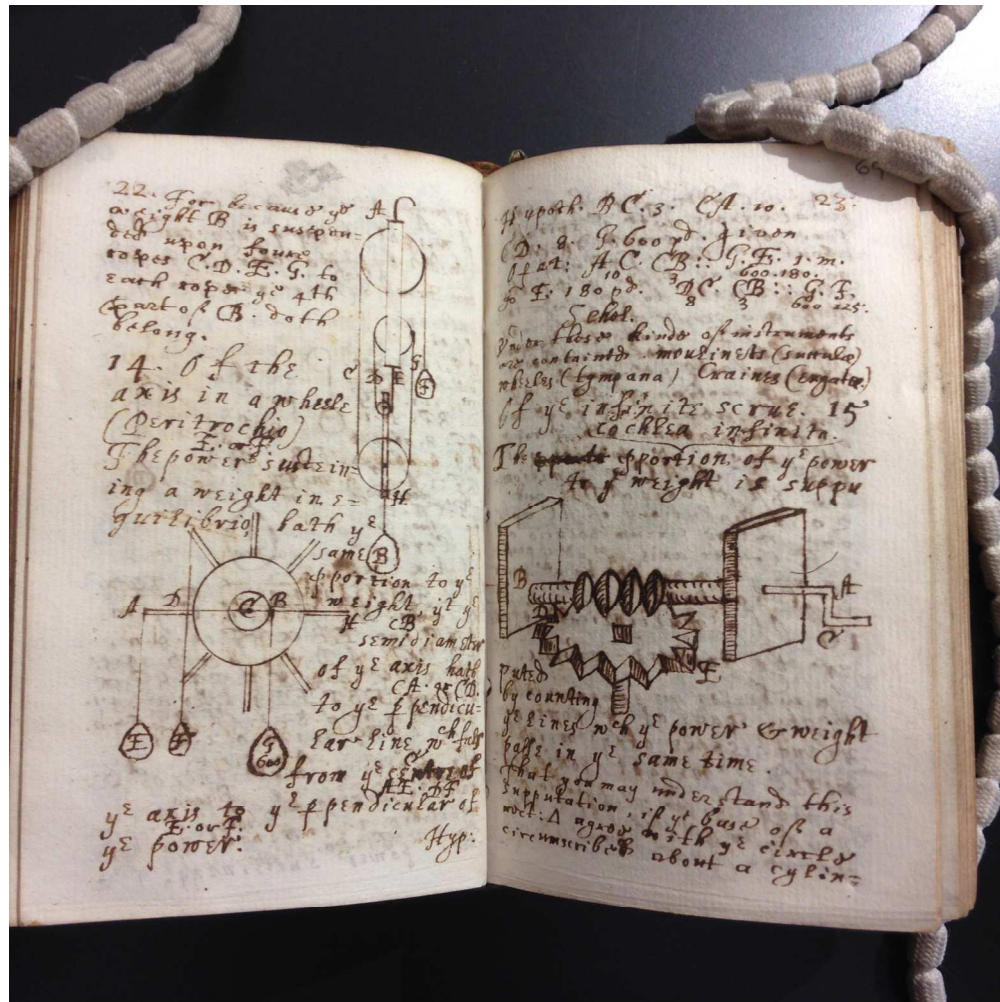 22. For because ye
weight B is suspen-
ded upon foure
ropes C. D. E. G. to
each rope ye 4th
part of B. doth
belong.
14. Of the
axis in a wheele
(Peritrochio)
E. or F.
The power sustein-
ing a weight in e-
quilibrio, hath ye
same
pportion to ye
weight, yt ye
CB
semidiameter
of ye axis hath
CA. or CD.
to ye ppendicu-
lar line wch falls
from ye center of
AE. DF
ye axis to ye ppendicular of
E. or F.
ye power.
Hyp:
A
G
C
D
E
F
H
B
A
D
C
B
H
E
F
G
600
69
23.
Hypoth. BC. 3. CA. 10.
CD. 8. G. 600 pd. given
AC. CB :: G. E. 1. m.
10 3 600. 180.
E. 180 pd. DC. CB :: G. F.
8 3 600 225.
Schol.
Under these kinds of instruments
are contained moulinests (suculæ)
wheeles (tympana) Craines (ergatæ)
Of ye infinite scrue. 15
cochlea infinita.
The pportion of ye power
to ye weight is suppu
B
D
E
A
C
puted
by counting
ye lines wch ye power & weight
passe in ye same time.
That you may understand this
supputation, if ye base of a
rect: Δ agree with ye circle
circumscribed about a cylin-